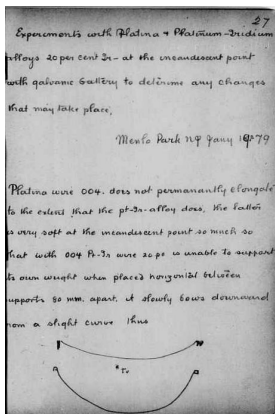 27
Experiments with Platina & Platinum-Iridium
alloys 20 per cent Ir- at the incandescent point
with galvanic battery to determine any changes
that may take place,
Menlo Park NJ Jany 79
Platina wire 004. does not permanantly elongate
to the extent that the pt-Ir-alloy does, the latter
is very soft at the incandescent point so much so
that with 004 Pt-Ir wire 20 pc is unable to support
its own weight when placed horizontal between
supports 80 mm. apart, it slowly bows downward
from a slight curve thus